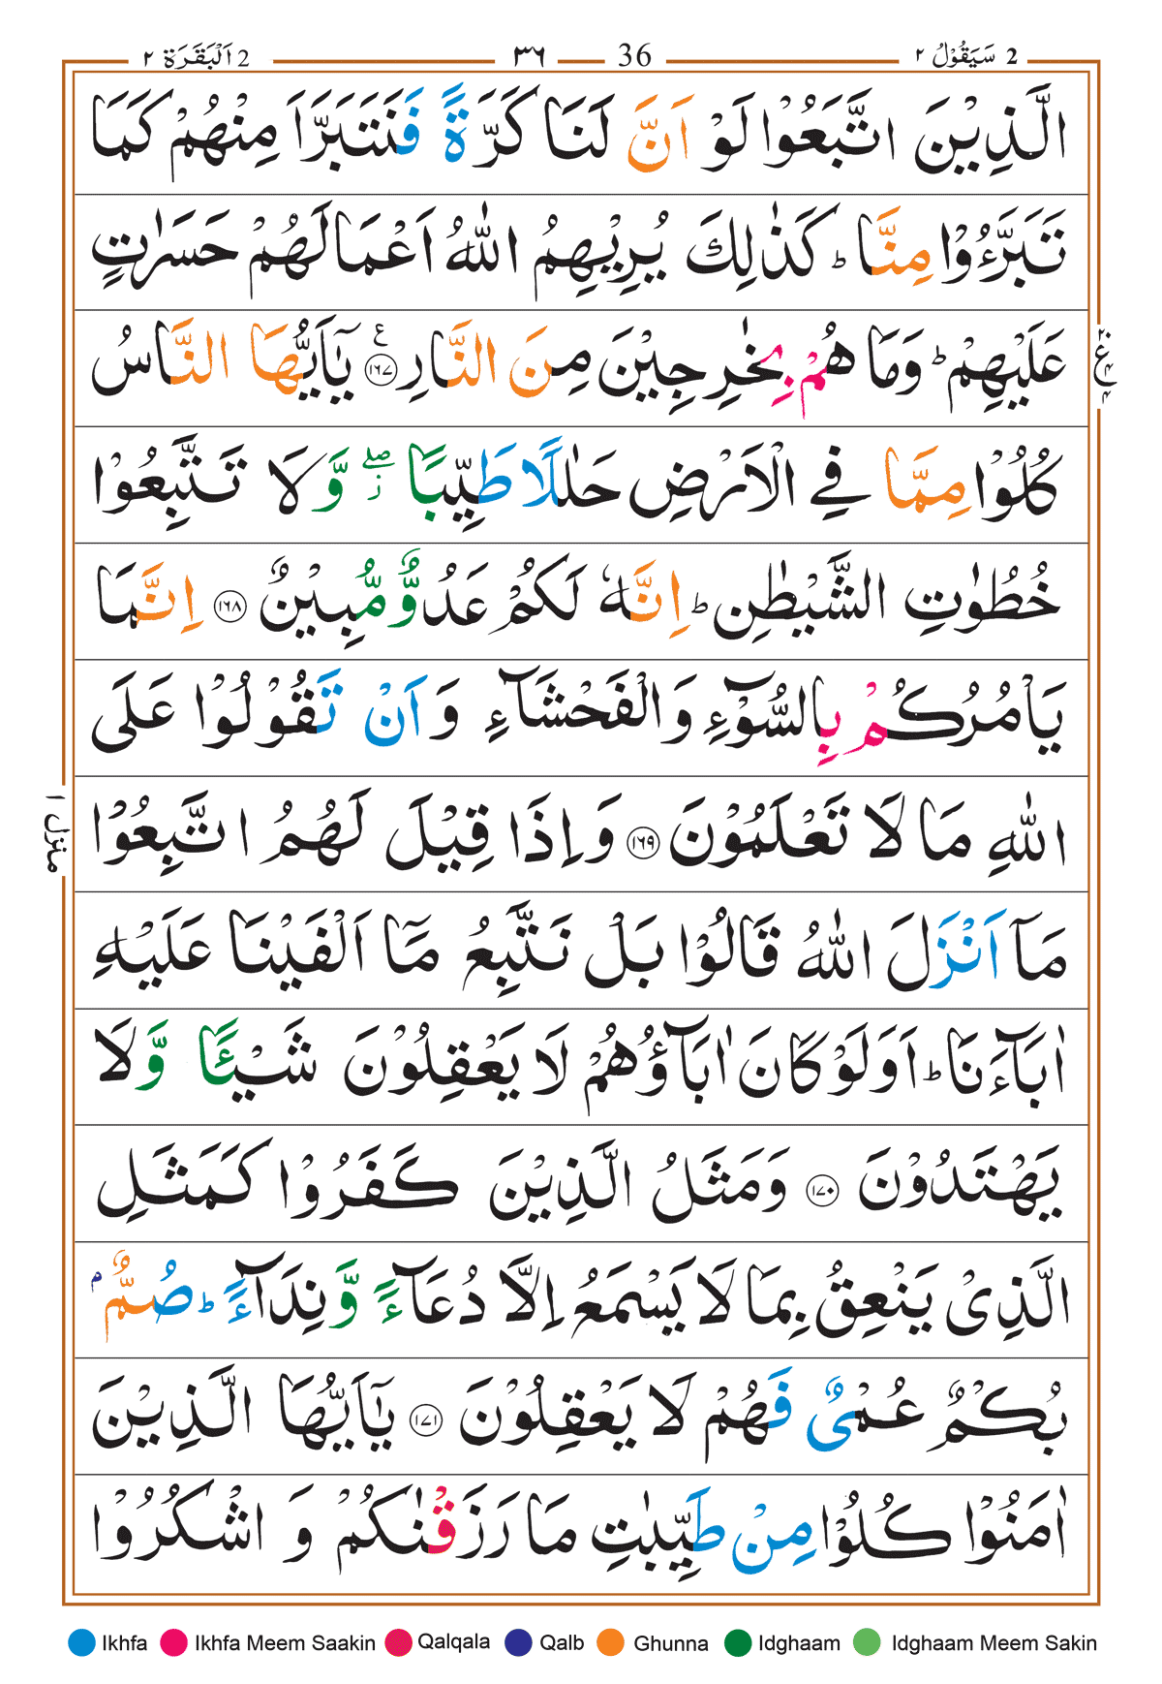 2 سَيَقُوْلُ ٢ 36 ٣٦ 2 اَلْبَقَرَة ٢
الَّذِيْنَ اتَّبَعُوْا لَوْ اَنَّ لَنَا كَرَّةً فَنَتَبَرَّاَ مِنْهُمْ كَمَا
تَبَرَّءُوْا مِنَّا ؕ كَذٰلِكَ يُرِيْهِمُ اللّٰهُ اَعْمَالَهُمْ حَسَرٰتٍ
عَلَيْهِمْ ؕ وَمَا هُمْ بِخٰرِجِيْنَ مِنَ النَّارِ ﴿١٦٧﴾ ع يٰۤاَيُّهَا النَّاسُ
كُلُوْا مِمَّا فِي الْاَرْضِ حَلٰلًا طَيِّبًا ۖ ز وَّلَا تَتَّبِعُوْا
خُطُوٰتِ الشَّيْطٰنِ ؕ اِنَّهٗ لَكُمْ عَدُوٌّ مُّبِيْنٌ ﴿١٦٨﴾ اِنَّمَا
يَاْمُرُكُمْ بِالسُّوْٓءِ وَالْفَحْشَآءِ وَاَنْ تَقُوْلُوْا عَلَى
اللّٰهِ مَا لَا تَعْلَمُوْنَ ﴿١٦٩﴾ وَاِذَا قِيْلَ لَهُمُ اتَّبِعُوْا
مَآ اَنْزَلَ اللّٰهُ قَالُوْا بَلْ نَتَّبِعُ مَآ اَلْفَيْنَا عَلَيْهِ
اٰبَآءَنَا ؕ اَوَلَوْ كَانَ اٰبَآؤُهُمْ لَا يَعْقِلُوْنَ شَيْـًٔا وَّلَا
يَهْتَدُوْنَ ﴿١٧٠﴾ وَمَثَلُ الَّذِيْنَ كَفَرُوْا كَمَثَلِ
الَّذِيْ يَنْعِقُ بِمَا لَا يَسْمَعُ اِلَّا دُعَآءً وَّنِدَآءً ؕ صُمٌّۢ
بُكْمٌ عُمْيٌ فَهُمْ لَا يَعْقِلُوْنَ ﴿١٧١﴾ يٰۤاَيُّهَا الَّذِيْنَ
اٰمَنُوْا كُلُوْا مِنْ طَيِّبٰتِ مَا رَزَقْنٰكُمْ وَ اشْكُرُوْا
منزل ١
Ikhfa Ikhfa Meem Saakin Qalqala Qalb Ghunna Idghaam Idghaam Meem Sakin